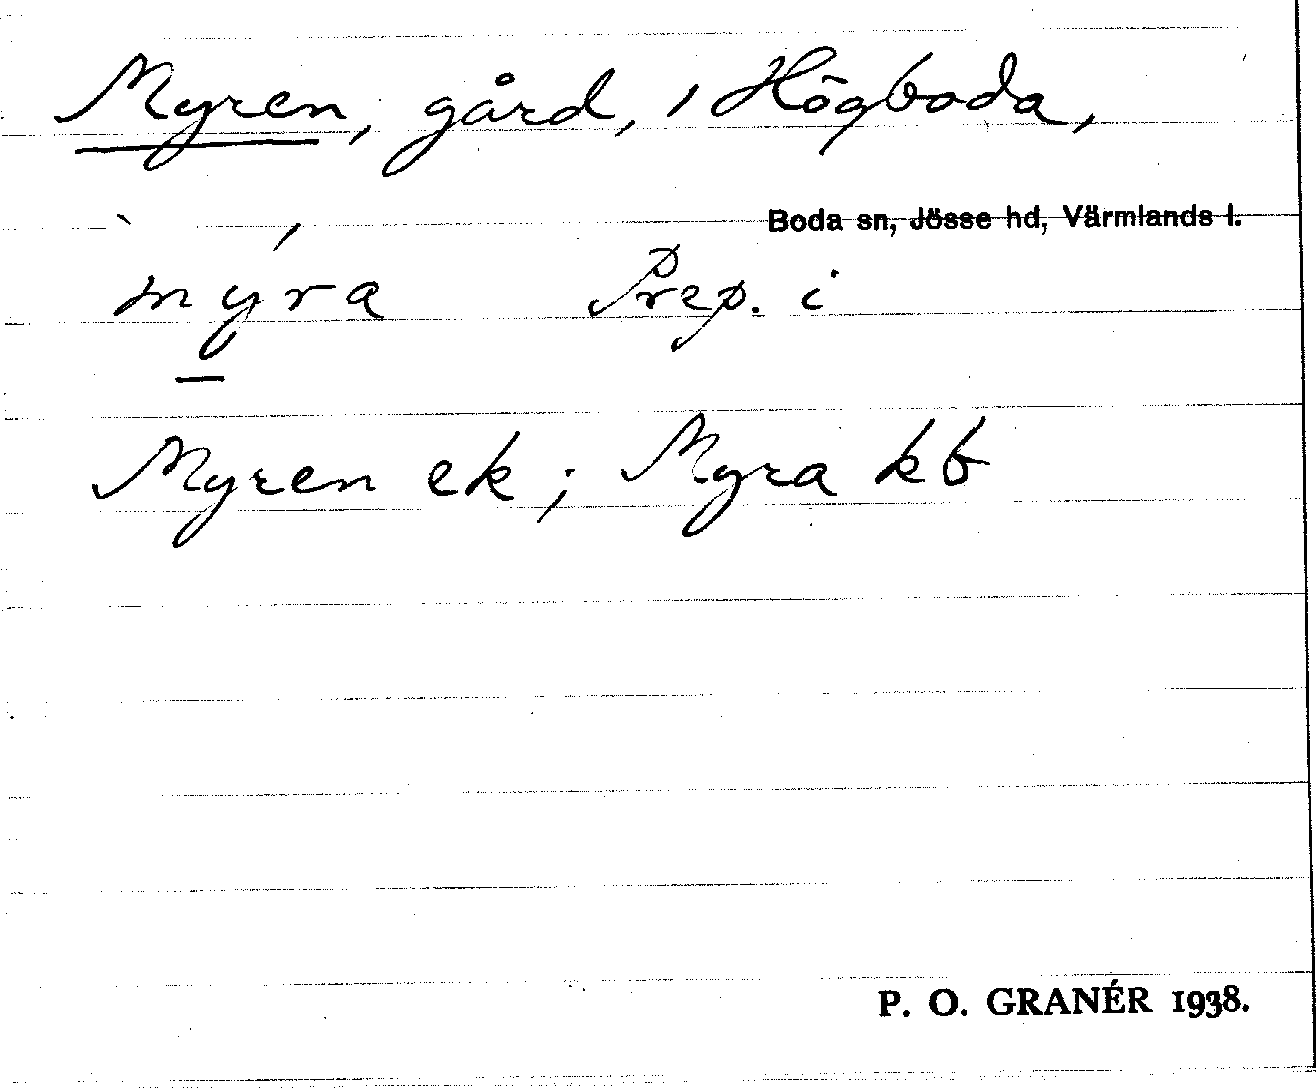 Myren, gård, i Högboda,
Boda sn, Jösse hd, Värmlands l.
myra Prep. i
Myren ek; Myra kb
P. O. GRANÉR 1938.